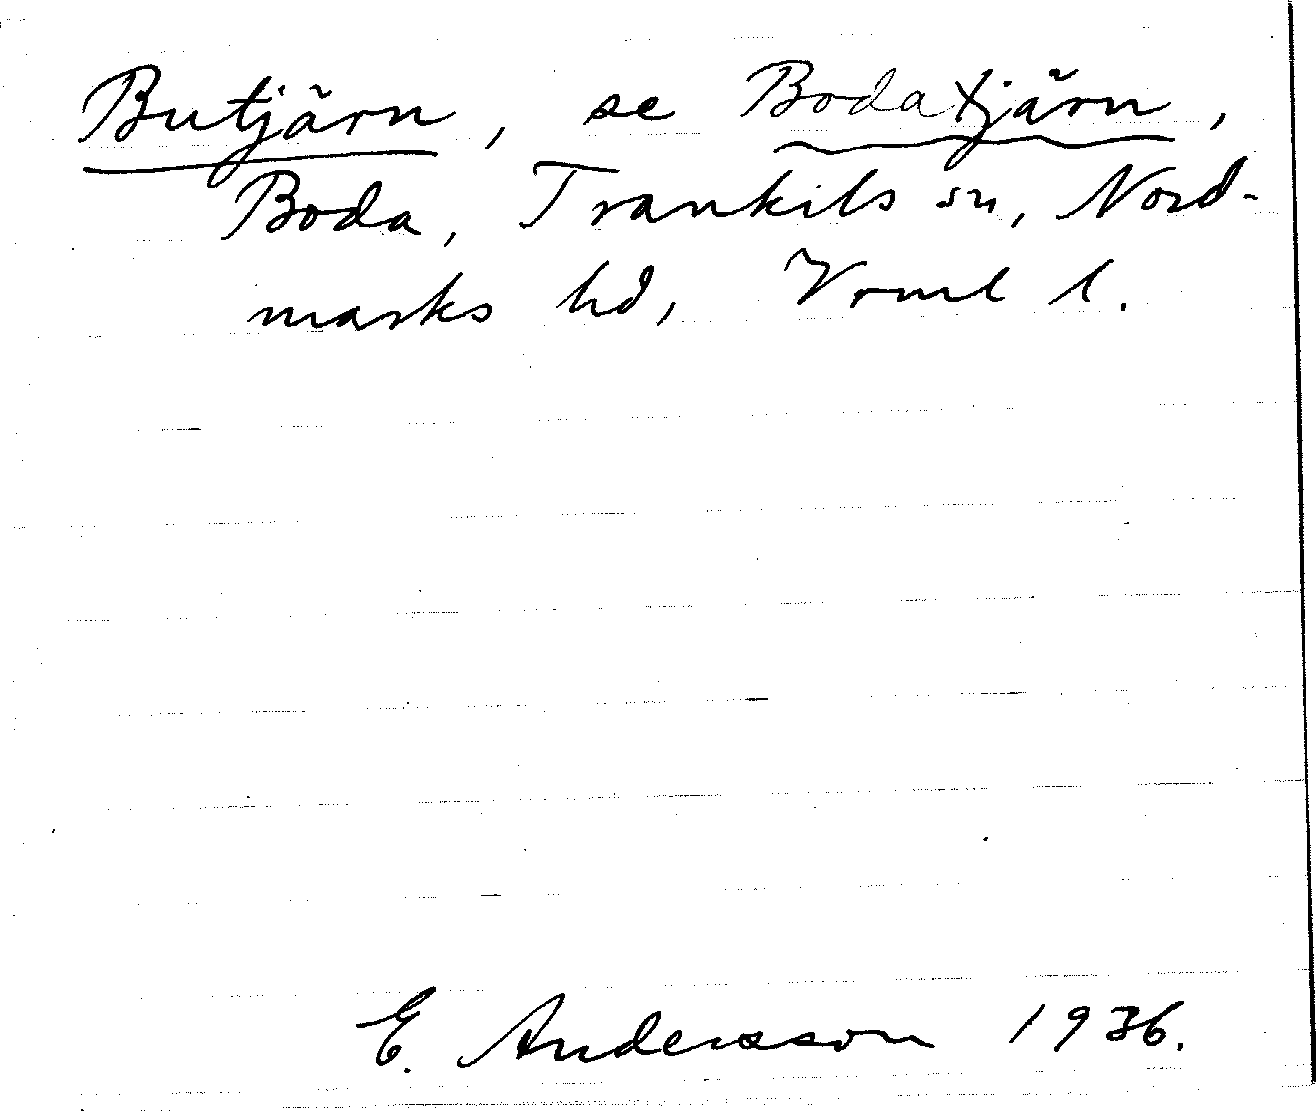 Butjärn, se Bodatjärn,
Boda, Trankils sn, Nord-
marks hd, Vrml l.
E. Andersson 1936.